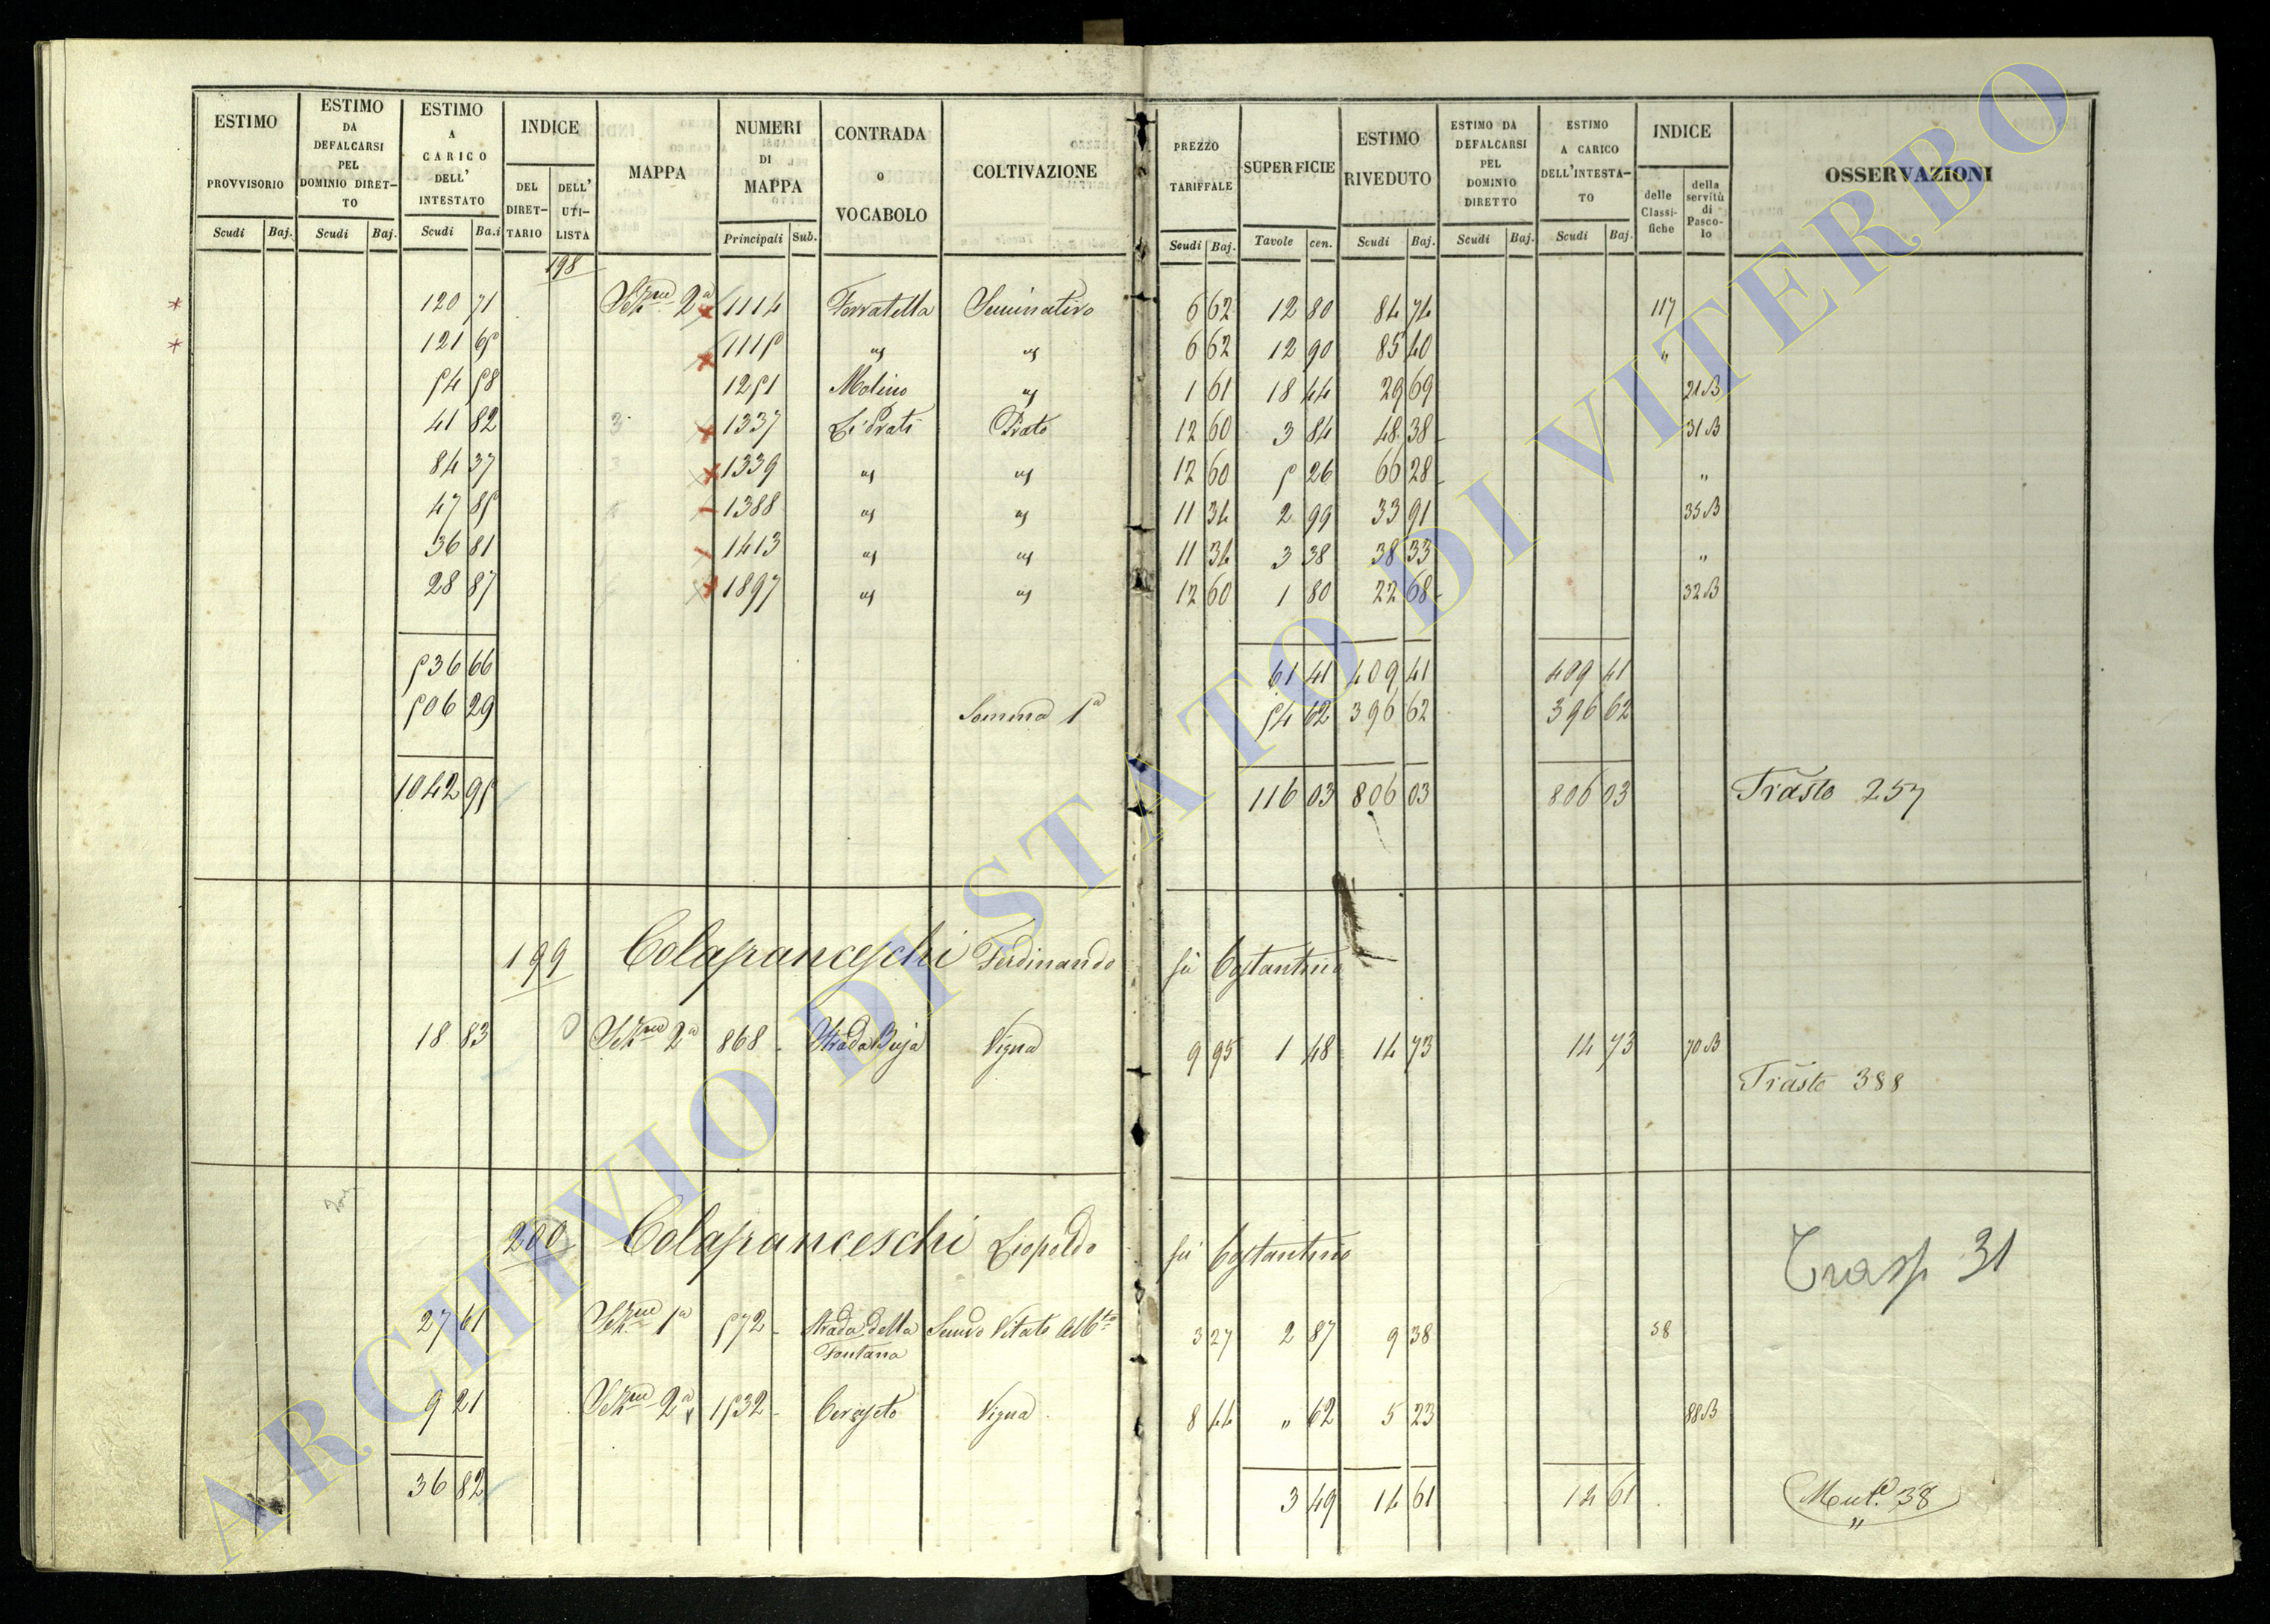 ESTIMO PROVVISORIO | ESTIMO DA DEFALCARSI PEL DOMINIO DIRET-TO | ESTIMO A CARICO DELL' INTESTATO | INDICE | MAPPA | NUMERI DI MAPPA | CONTRADA O VOCABOLO | COLTIVAZIONE | PREZZO TARIFFALE | SUPERFICIE | ESTIMO RIVEDUTO | ESTIMO DA DEFALCARSI PEL DOMINIO DIRETTO | ESTIMO A CARICO DELL'INTESTA-TO | INDICE | OSSERVAZIONI
DEL DIRET-TARIO | DELL' UTI-LISTA | delle Classi-fiche | della servitù di Pasco-lo
Scudi | Baj. | Scudi | Baj. | Scudi | Ba.i | Principali | Sub. | Scudi | Baj. | Tavole | cen. | Scudi | Baj. | Scudi | Baj. | Scudi | Baj.
198
120 71 | Sezne 2a | 1114 | Ferratella | Seminativo | 6 62 | 12 80 | 84 74 | 117
121 65 | 1115 | " | " | 6 62 | 12 90 | 85 40 | "
54 58 | 1251 | Molino | " | 1 61 | 18 44 | 29 69 | 21B
41 82 | 3 | 1337 | Li Prati | Prato | 12 60 | 3 84 | 48 38 | 31B
84 37 | 3 | 1339 | " | " | 12 60 | 5 26 | 66 28 | "
47 85 | 1388 | " | " | 11 34 | 2 99 | 33 91 | 35B
36 81 | 1413 | " | " | 11 34 | 3 38 | 38 33 | "
28 87 | 1897 | " | " | 12 60 | 1 80 | 22 68 | 32B
536 66 | 61 41 | 409 41 | 409 41
506 29 | Somma 1a | 54 62 | 396 62 | 396 62
1042 95 | 116 03 | 806 03 | 806 03 | Trasto 257
199 Colafranceschi Ferdinando fù Costantino
18 83 | Sezne 2a | 868 | Strada Buja | Vigna | 9 95 | 1 48 | 14 73 | 14 73 | 70B
Trasto 388
200 Colafranceschi Leopoldo fù Costantino
Trasp 31
27 61 | Sezne 1a | 572 | Strada della Fontana | Semvo Vitato Albto | 3 27 | 2 87 | 9 38 | 58
9 21 | Sezne 2a | 1532 | Cerqueto | Vigna | 8 44 | " 62 | 5 23 | 88B
36 82 | 3 49 | 14 61 | 14 61 | Mut.e 38
ARCHIVIO DI STATO DI VITERBO